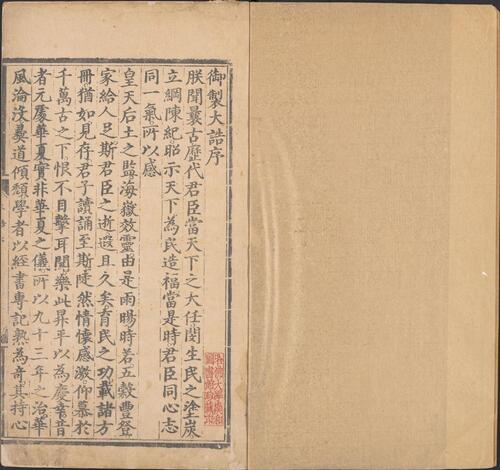 御製大誥序
朕聞曩古歷代君臣當天下之大任閔生民之塗炭
立綱陳紀昭示天下為民造福當是時君臣同心志
同一氣所以感
皇天后土之監海嶽效靈由是雨暘時若五穀豐登
家給人足斯君臣之逝遐且久矣育民之功載諸方
冊猶如見存君子讀誦至斯陡然情懷感激仰慕於
千萬古之下恨不目擊耳聞樂此昇平以為慶幸昔
者元處華夏實非華夏之儀所以九十三年之治華
風淪沒彝道傾頹學者以經書專記熟為奇其持心